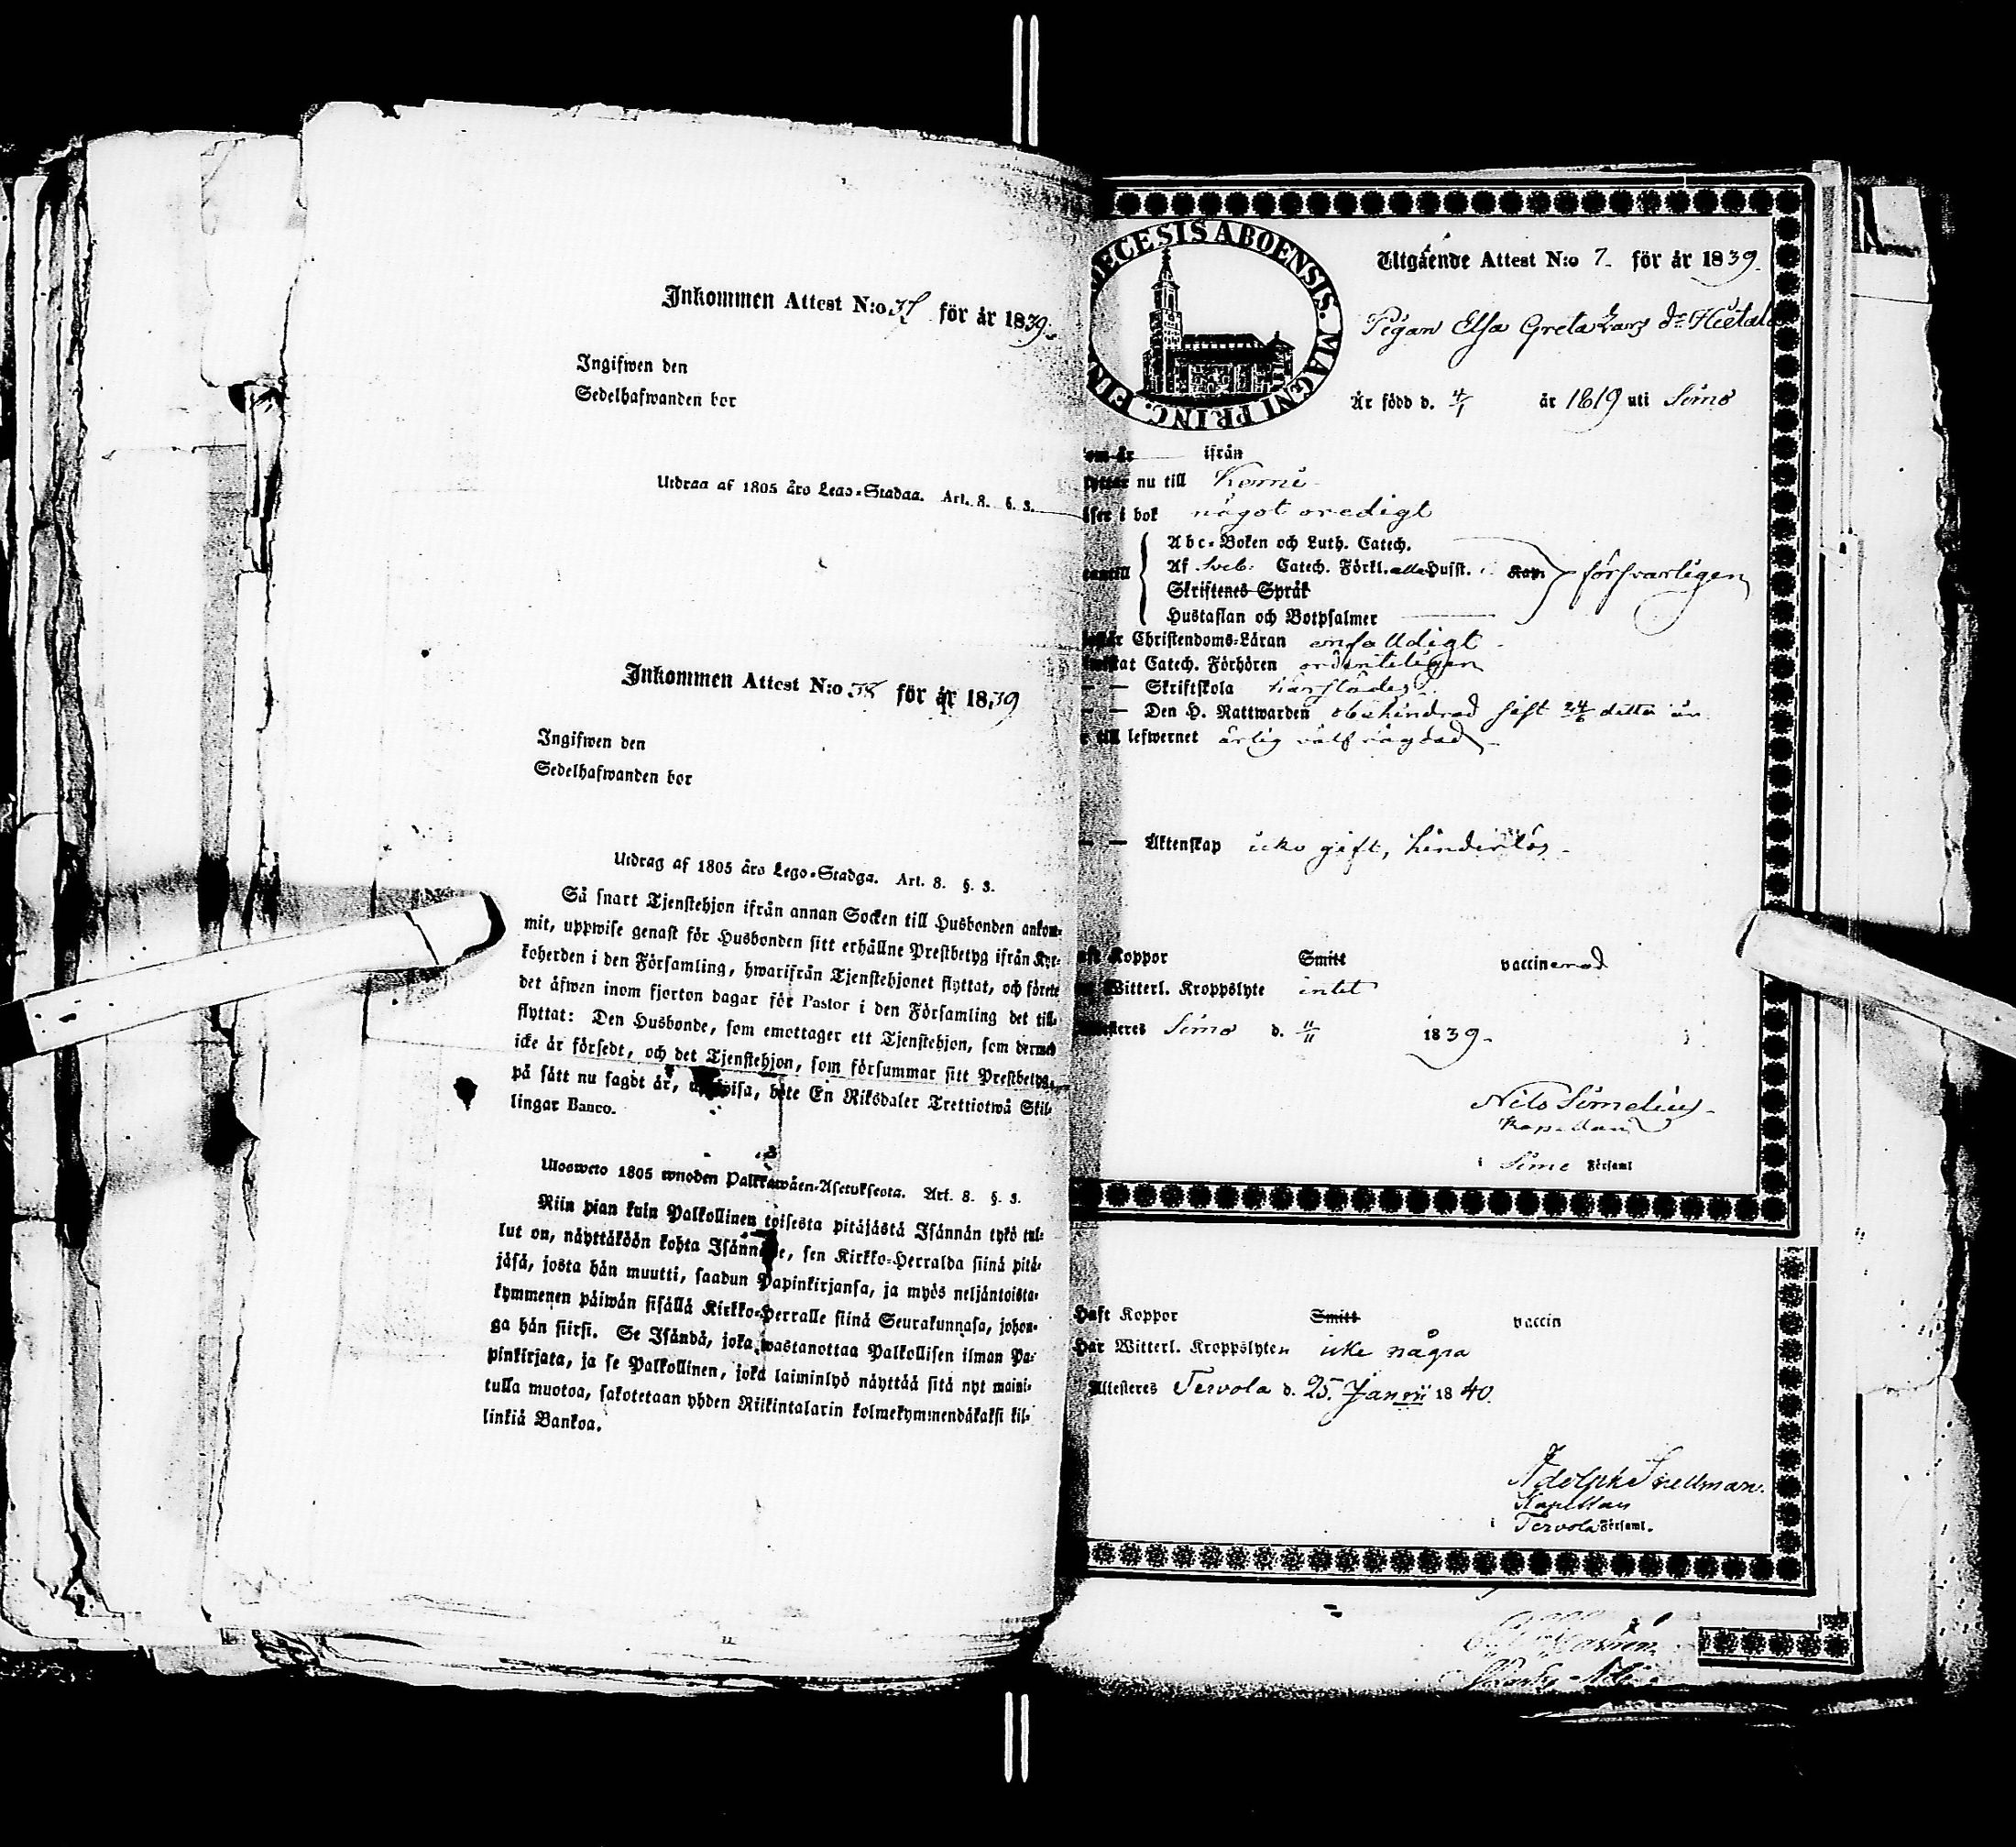 Inkommen Attest N:o 37 för år 1839.
Ingifwen den
Sedelhafwanden bor
Utdrag af 1805 års Lego-Stadga. Art. 8. §. 3.
Inkommen Attest N:o 38 för år 1839
Ingifwen den
Sedelhafwanden bor
Utdrag af 1805 års Lego-Stadga. Art. 8. §. 3.
Så snart Tjenstehjon ifrån annan Socken till Husbonden ankom-
mit, uppwise genast för Husbonden sitt erhållne Prestbetyg ifrån Kyr-
koherden i den Församling, hwarifrån Tjenstehjonet flyttat, och förete
det äfwen inom fjorton dagar för Pastor i den Församling det till-
flyttat: Den Husbonde, som emottager ett Tjenstehjon, som dermed
icke är försedt, och det Tjenstehjon, som försummar sitt Prestbetyg,
på sätt nu sagdt är, uppwisa, böte En Riksdaler Trettiotwå Skil-
lingar Banco.
Ulosweto 1805 wuoden Palkkawäen-Asetuksesta. Art. 8. §. 3.
Niin pian kuin Palkollinen toisesta pitäjästä Isännän tykö tul-
lut on, näyttäköön kohta Isännälle, sen Kirkko-Herralda siinä pitä-
jäsä, josta hän muutti, saadun Papinkirjansa, ja myös neljäntoista-
kymmenen päiwän sisällä Kirkko-Herralle siinä Seurakunnasa, johon-
ga hän siirsi. Se Isändä, joka wastanottaa Palkollisen ilman Pa-
pinkirjata, ja se Palkollinen, joka laiminlyö näyttää sitä nyt maini-
tulla muotoa, sakotetaan yhden Riikintalarin kolmekymmendäkaksi kil-
linkiä Bankoa.
ECESIS ABOENSIS. MAGNI PRINC. FIN
Utgående Attest N:o 7. för år 1839.
Pigan Elsa Greta Lars dr Hietala
Är född d. 4/1 år 1819 uti Simo
om år ifrån
flyttar nu till Kemi
läser i bok något oredigt
Abc-Boken och Luth. Catech.
Af Sveb. Catech. Förkl. alla Husst. Kap. försvarligen
Skriftenes Språk
Hustaflan och Botpsalmer
Christendoms-Läran enfalldigt
Catech. Förhören ordenteligen
— — Skriftskola härstädes
— — Den H. Nattwarden obehindrad sist 24/6 detta år
till lefwernet ärlig välfrägdad
— — Äktenskap icke gift, hinderslös
haft Koppor Smitt vaccinerad
Witterl. Kroppslyte intet
Attesteres Simo d. 11/11 1839.
Nils Simelius
Kapellan
i Simo Församl
Haft Koppor Smitt vaccin
Har Witterl. Kroppslyten icke några
Attesteres Tervola d. 25. Januari 1840.
Adolph Snellman.
Kapellan
i Tervola Församl.